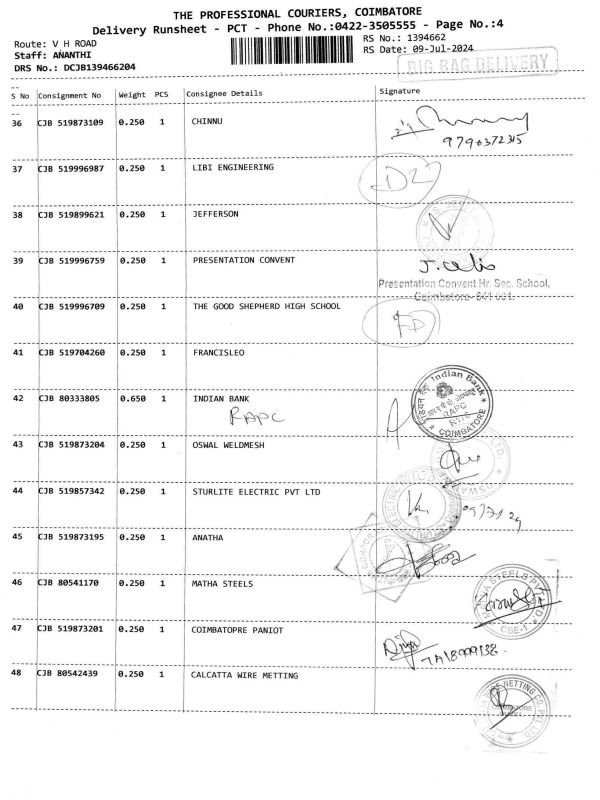 THE PROFESSIONAL COURIERS, COIMBATORE
Delivery Runsheet - PCT - Phone No.:0422-3505555 - Page No.:4
Route: V H ROAD
RS No.: 1394662
Staff: ANANTHI
RS Date: 09-Jul-2024
DRS No.: DCJB139466204
BIG BAG DELIVERY
S No Consignment No Weight PCS Consignee Details Signature
36 CJB 519873109 0.250 1 CHINNU
9790372315
37 CJB 519996987 0.250 1 LIBI ENGINEERING
38 CJB 519899621 0.250 1 JEFFERSON
39 CJB 519996759 0.250 1 PRESENTATION CONVENT
Presentation Convent Hr. Sec. School,
Coimbatore-641 001.
40 CJB 519996709 0.250 1 THE GOOD SHEPHERD HIGH SCHOOL
41 CJB 519704260 0.250 1 FRANCISLEO
42 CJB 80333805 0.650 1 INDIAN BANK
RAPC
Indian Bank
RAPC
COIMBATORE
43 CJB 519873204 0.250 1 OSWAL WELDMESH
44 CJB 519857342 0.250 1 STURLITE ELECTRIC PVT LTD
45 CJB 519873195 0.250 1 ANATHA
46 CJB 80541170 0.250 1 MATHA STEELS
CBE-1
47 CJB 519873201 0.250 1 COIMBATOPRE PANIOT
48 CJB 80542439 0.250 1 CALCATTA WIRE METTING